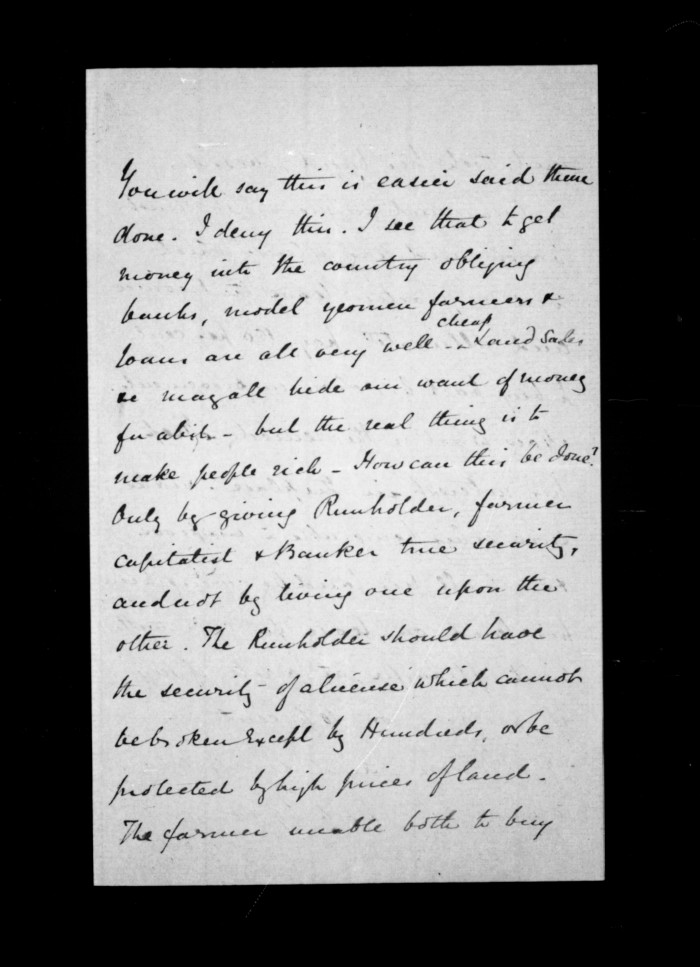 You will say this is easier said than
done. I deny this. I see that to get
money into the country obliging
banks, model yeomen farmers &
loans are all very well - cheap Land Sales
&c may all hide our want of money
for a bit - but the real thing is to
make people rich - How can this be done?
Only by giving Runholder, farmer
capitalist & Banker true security,
and not by living one upon the
other. The Runholder should have
the security of a license which cannot
be broken Except by Hundreds, or be
protected by high prices of land -
The farmer unable both to buy